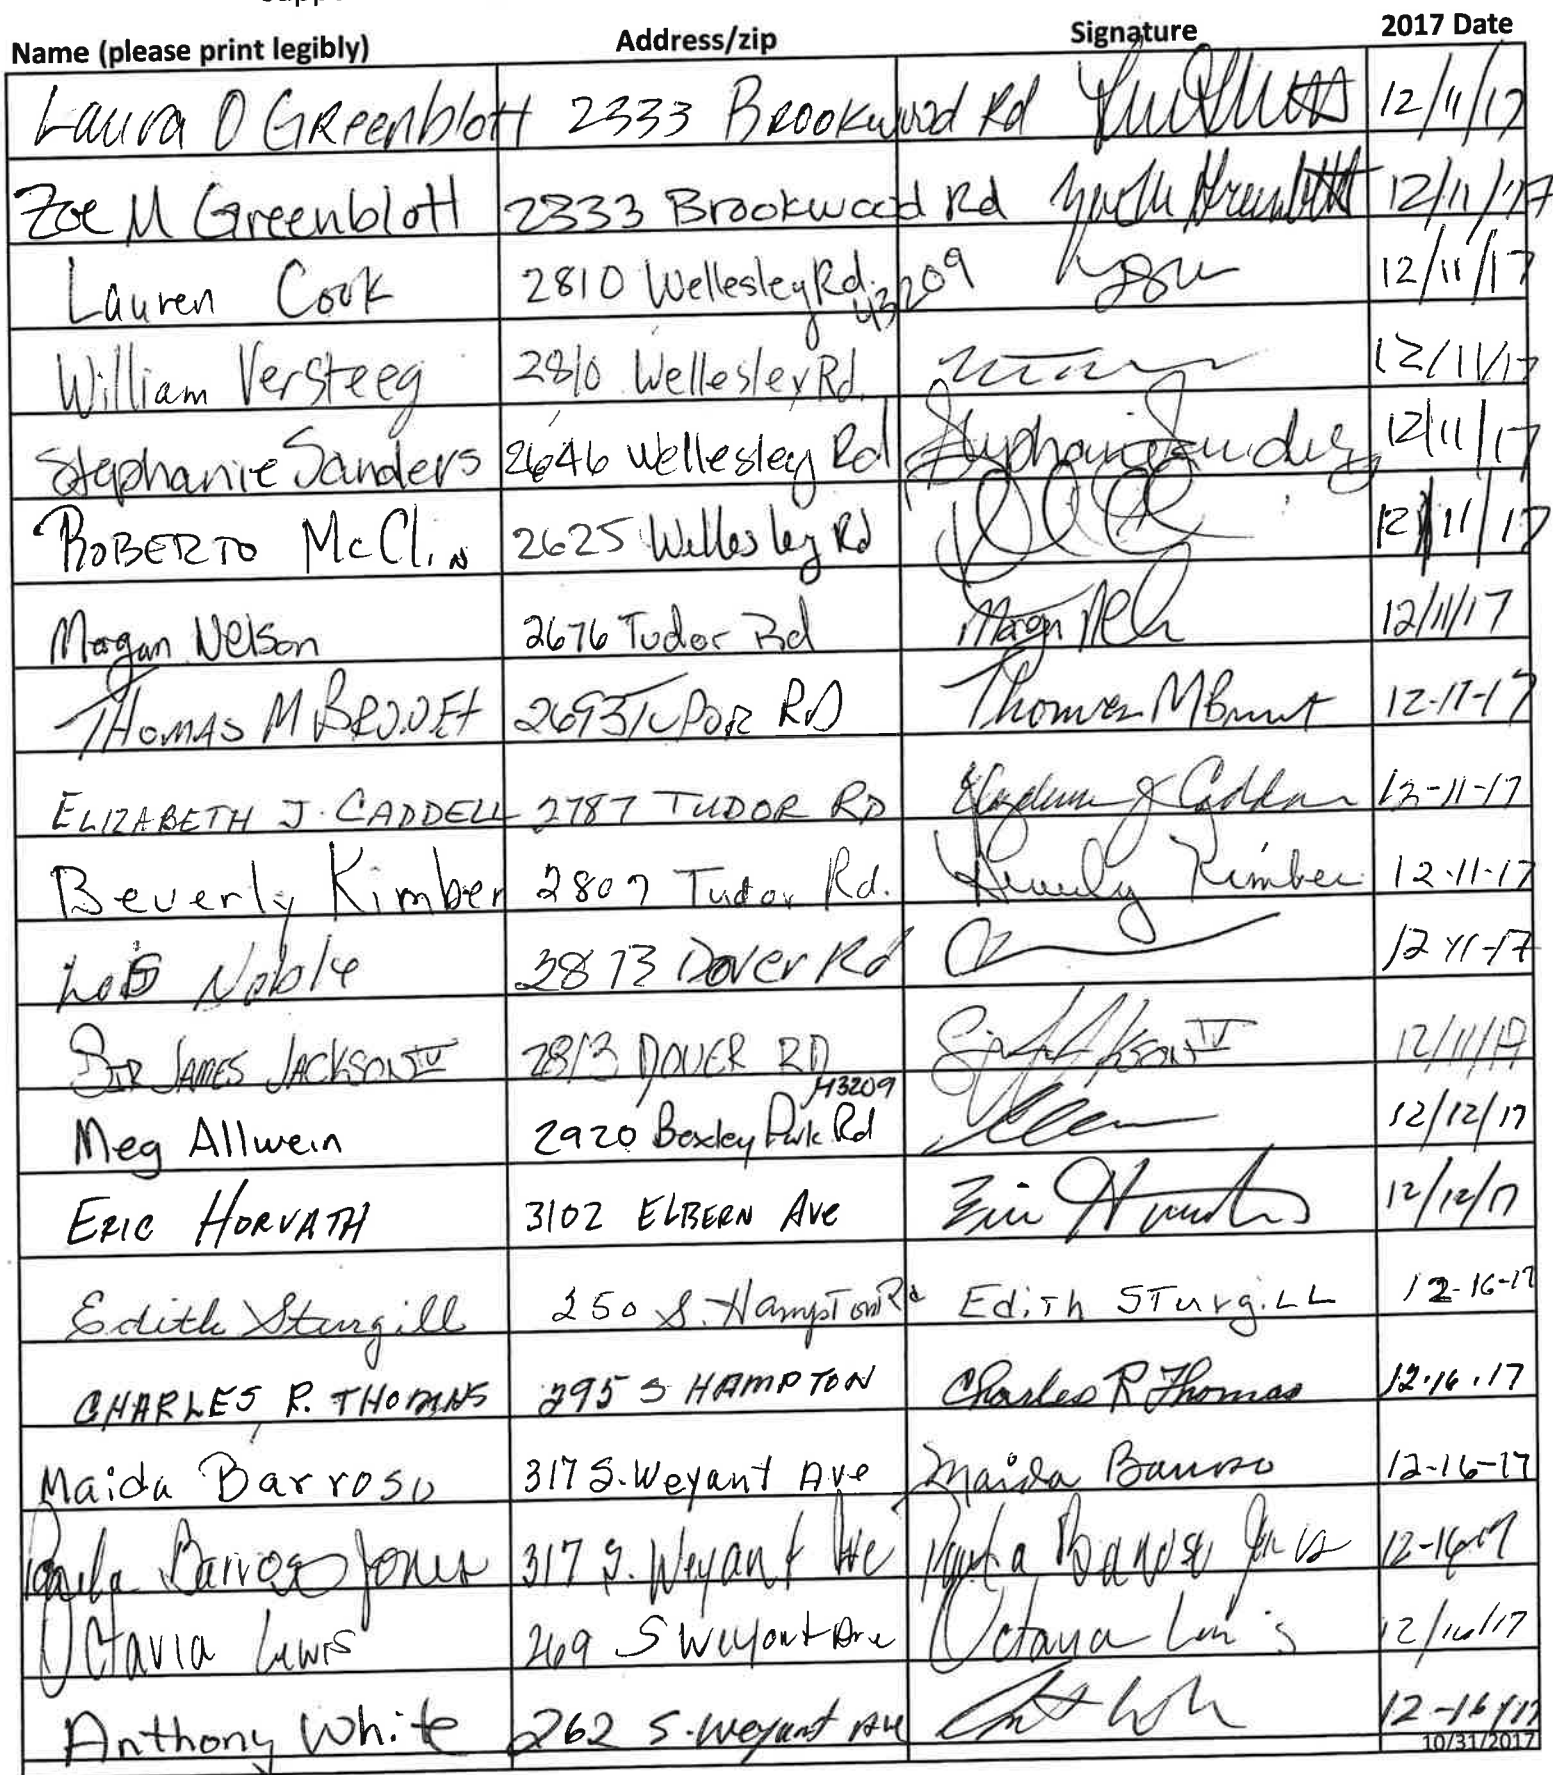 Name (please print legibly) Address/zip Signature 2017 Date
Laura O Greenblott 2333 Brookwood Rd 12/11/17
Zoe M Greenblott 2333 Brookwood Rd 12/11/17
Lauren Cook 2810 Wellesley Rd. 43209 12/11/17
William Versteeg 2810 Wellesley Rd. 12/11/17
Stephanie Sanders 2646 Wellesley Rd Stephanie Sanders 12/11/17
ROBERTO McClin 2625 Wellesley Rd 12/11/17
Morgan Nelson 2676 Tudor Rd 12/11/17
THOMAS M 2693 TUDOR RD Thomas M 12-11-17
ELIZABETH J. CADDELL 2787 TUDOR RD 12-11-17
Beverly Kimber 2807 Tudor Rd. Beverly Kimber 12-11-17
Lois Noble 2873 Dover Rd 12-11-17
SIR JAMES JACKSON IV 2813 DOVER RD 12/11/17
Meg Allwein 2920 Bexley Park Rd 43209 12/12/17
ERIC HORVATH 3102 ELBERN AVE Eric Horvath 12/12/17
Edith Sturgill 250 S. Hampton Rd Edith STurgiLL 12-16-17
CHARLES R. THOMAS 295 S HAMPTON Charles R Thomas 12.16.17
Maida Barroso 317 S. Weyant Ave Maida Barroso 12-16-17
Paula Barroso Jones 317 S. Weyant Ave Paula Barroso Jones 12-16-17
Octavia Lewis 269 S Weyant Ave Octavia Lewis 12/16/17
Anthony White 262 S. Weyant Ave 12-16-17
10/31/2017